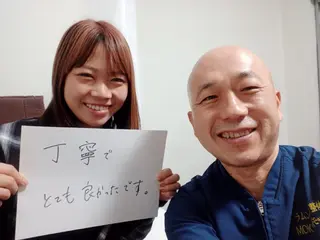 丁寧で
とても良かったです。